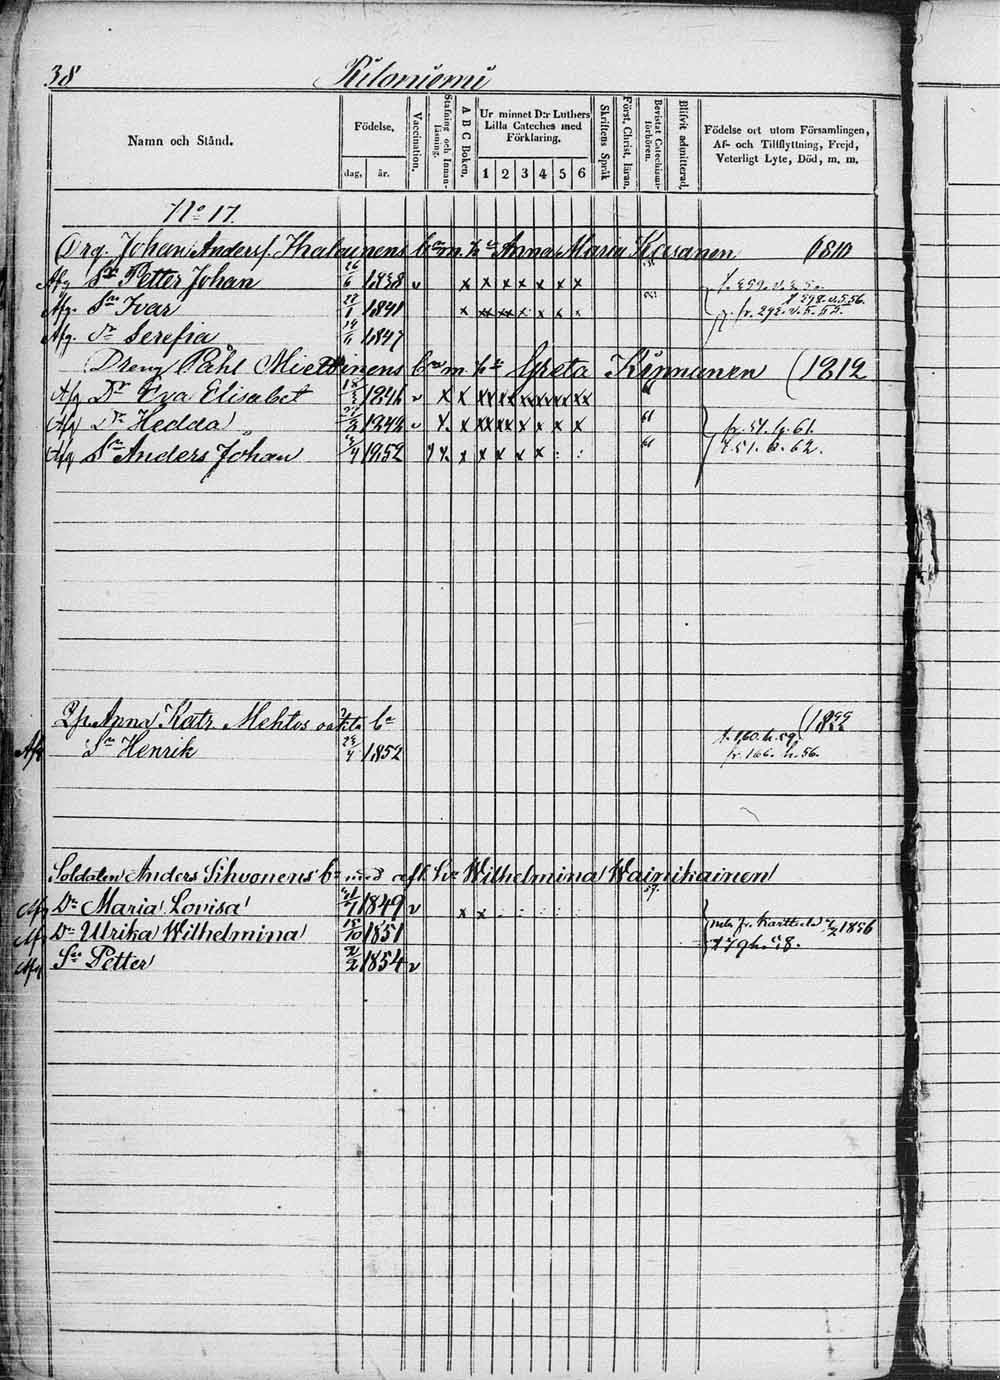 38 Kiloniemi
Namn och Stånd.
Födelse,
dag, år.
Vaccination.
Stafning och Innanläsning.
A B C Boken.
Ur minnet D:r Luthers Lilla Cateches med Förklaring.
1 2 3 4 5 6
Skriftens Språk
Först. Christ. läran.
Bevistat Catechismiförhören.
Blifvit admitterad.
Födelse ort utom Församlingen,
Af- och Tillflyttning, Frejd,
Veterligt Lyte, Död, m. m.
No 17.
Drg. Johan Anderss. Ihalainens bn m. h. Anna Maria Kasanen 1810
Afg Sn Petter Johan 26/6 1838 v x x x x x x x
Afg. Sn Ivar 1841 x xx xx x x x x
Afg. Dr Serefia 1847
Dreng Påhl Miettinens bn m h. Greta Kinnunen (1812
Afg Dr Eva Elisabet 1846 v x x xx xx xx xx xx xx
Afg Dr Hedda v x. x xx xx x x x x 61 fr. 51. h. 61.
Afg Sn Anders Johan 1852 x x x x x : : 61 t. 51. b. 62.
Anna Katr. Mehtos
Afg Sn Henrik 1852 fr. 166. h. 56.
Soldaten Anders Sihvonens bn med afl. h. Wilhelmina Wainikainen
Afg Dr Maria Lovisa 1849 v x x 57.
Afg Dr Ulrika Wilhelmina 1851 1856
Afg Sn Petter 2/2 1854 v